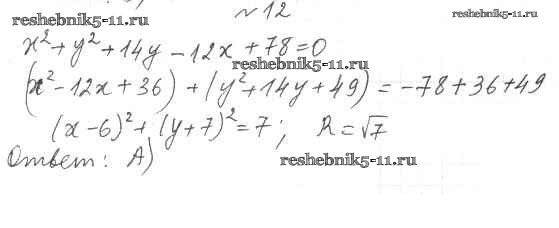 №12
reshebnik5-11.ru
reshebnik5-11.ru
x² + y² + 14y - 12x + 78 = 0
reshebnik5-11.ru
(x² - 12x + 36) + (y² + 14y + 49) = -78 + 36 + 49
(x - 6)² + (y + 7)² = 7; R = √7
Ответ: А)
reshebnik5-11.ru